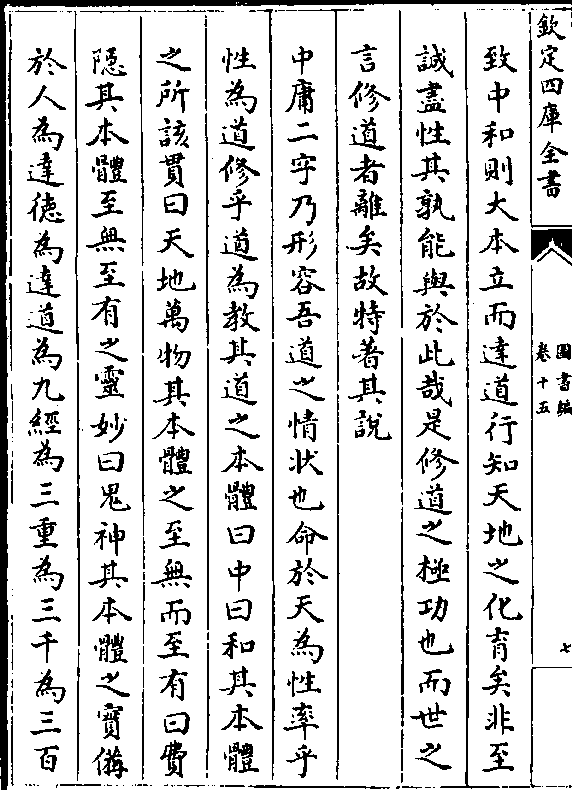 欽定四庫全書
圖書編
卷十五
七
致中和則大本立而達道行知天地之化育矣非至
誠盡性其孰能與於此哉是修道之極功也而世之
言修道者離矣故特著其說
中庸二字乃形容吾道之情狀也命於天為性率乎
性為道修乎道為教其道之本體曰中曰和其本體
之所該貫曰天地萬物其本體之至無而至有曰費
隠其本體至無至有之靈妙曰鬼神其本體之實備
於人為達徳為達道為九經為三重為三千為三百